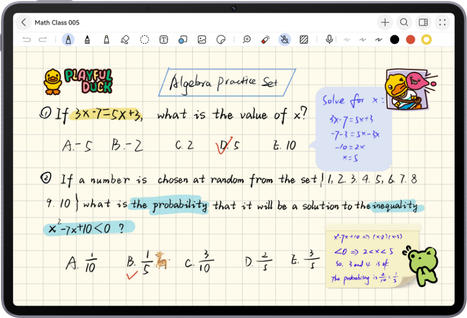 Math Class 005
PLAYFUL
DUCK
Algebra Practice Set
① If 3x-7=5x+3, what is the value of x?
A.-5 B.-2 C.2 D.5 E.10
Solve for x:
3x-7=5x+3
-7-3=5x-3x
-10=2x
x=5
② If a number is chosen at random from the set {1, 2, 3, 4, 5, 6, 7, 8
9, 10} what is the probability that it will be a solution to the inequality
x²-7x+10<0 ?
A. 1/10 B. 1/5 C. 3/10 D. 2/5 E. 3/5
<0 ⇒ 2<x<5
So, 3 and 4 is of
The probability is 2/10 = 1/5